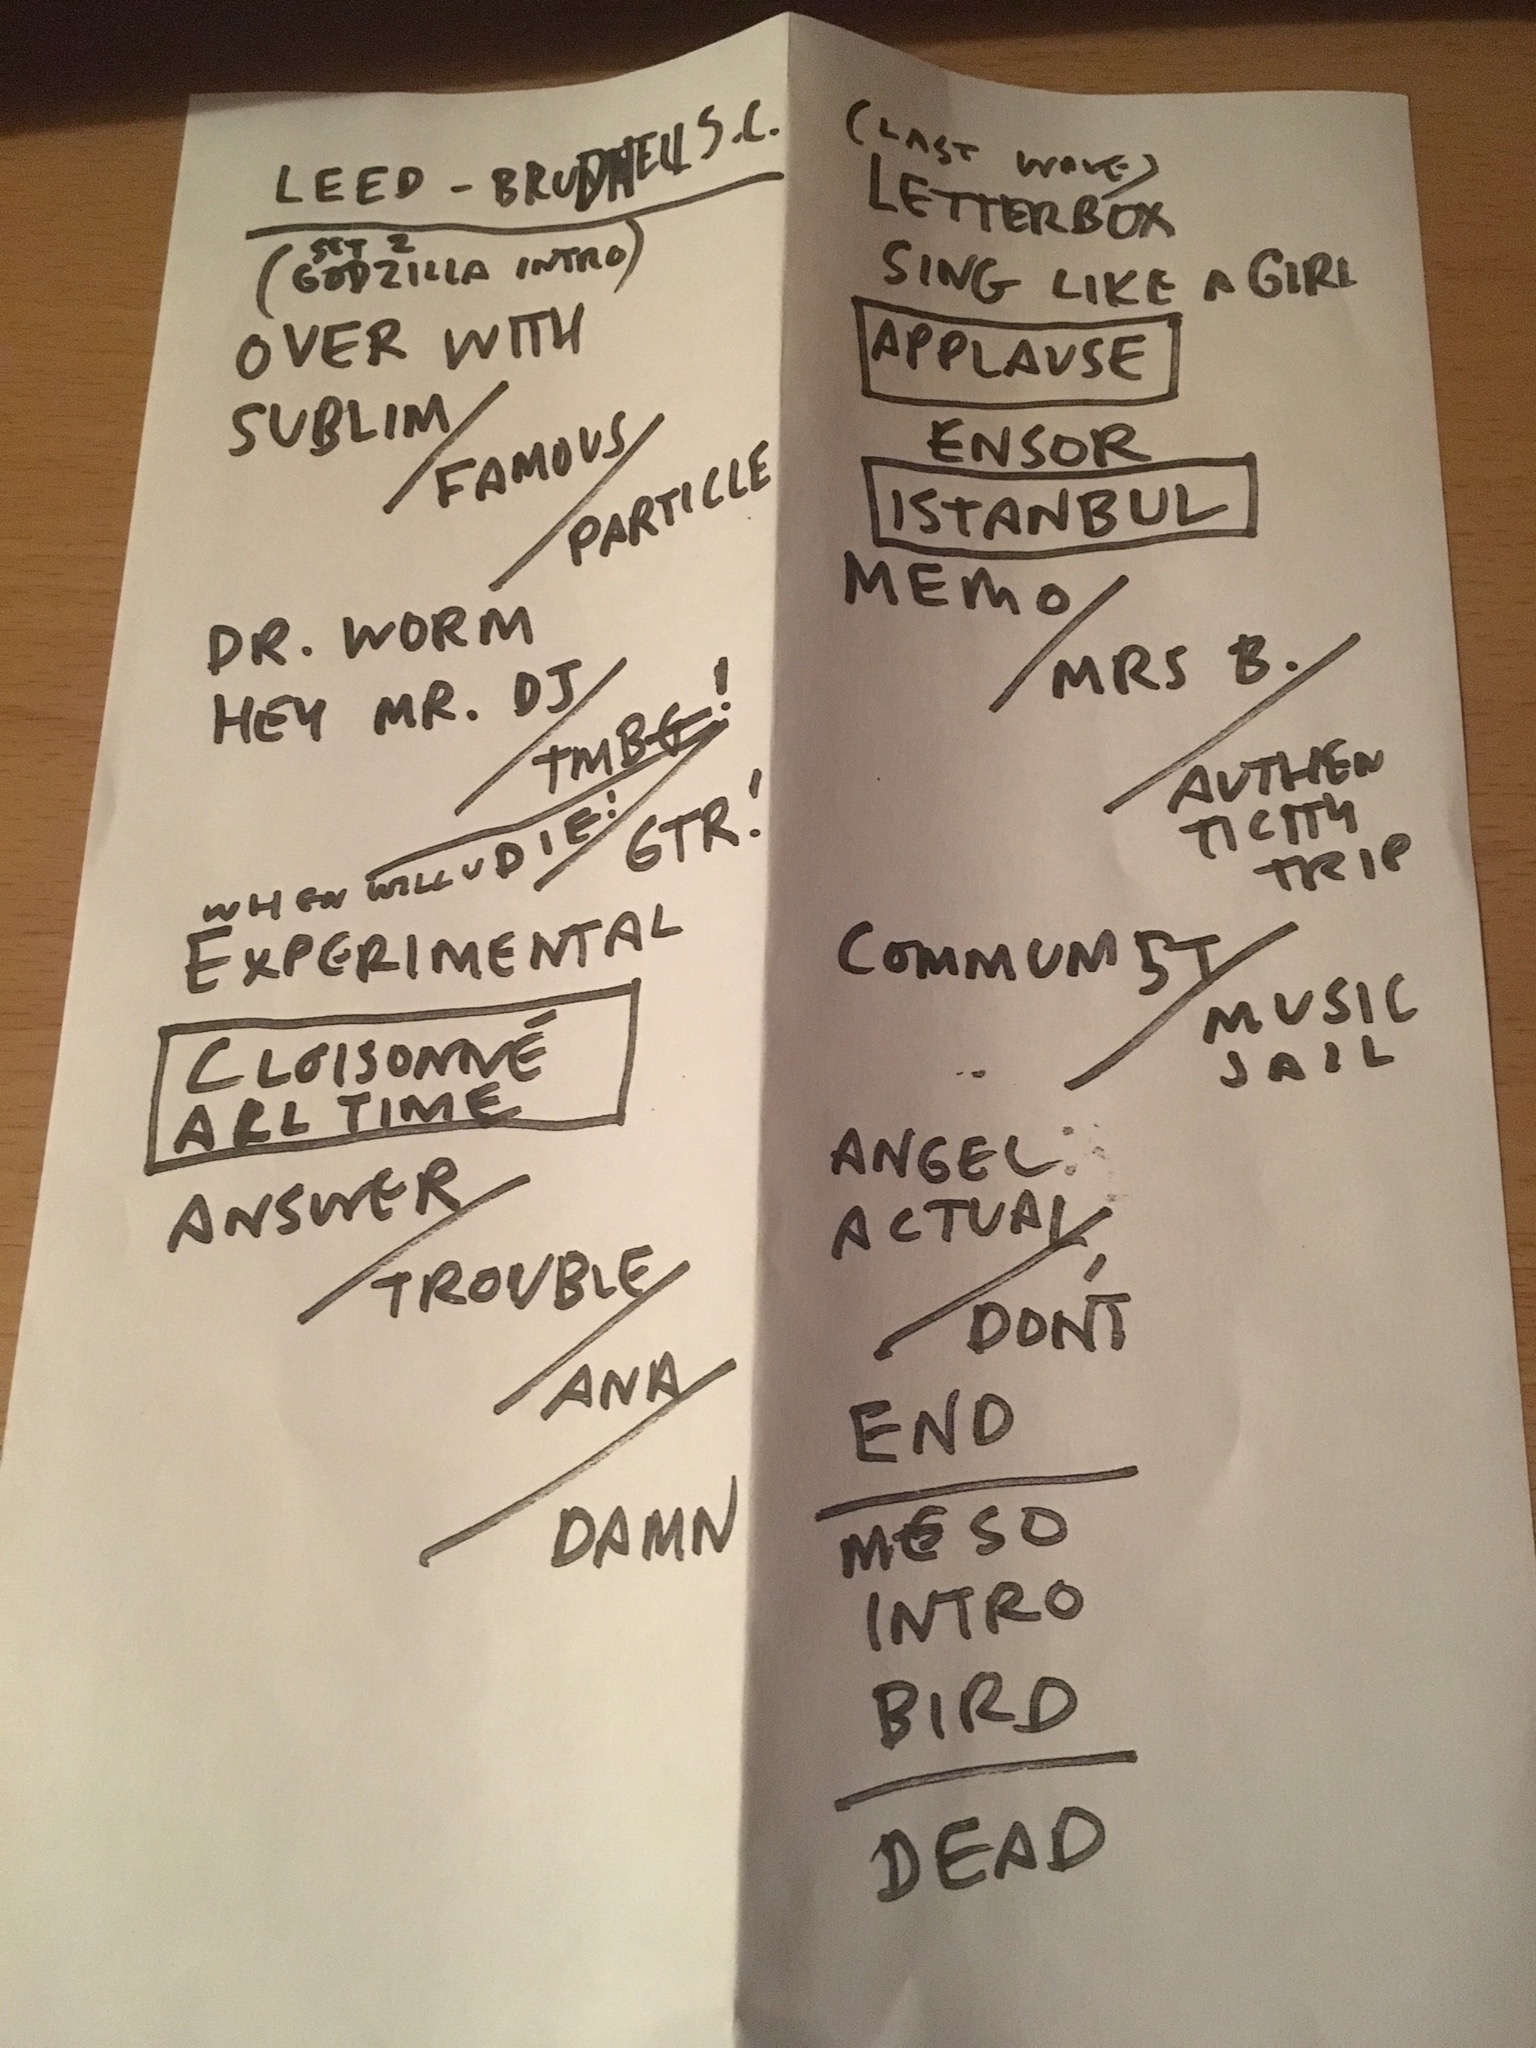 LEED - BRUDNELL S.C.
SET 2
(GODZILLA INTRO)
OVER WITH
SUBLIM/
FAMOUS/
PARTICLE
DR. WORM
HEY MR. DJ/
TMBG!
WHEN WILL U DIE!/
GTR!
EXPERIMENTAL
CLOISONNÉ
ARL TIME
ANSWER/
TROUBLE/
ANA/
DAMN
(LAST WAVE)
LETTERBOX
SING LIKE A GIRL
APPLAUSE
ENSOR
ISTANBUL
MEMO/
MRS B./
AUTHEN
TICITY
TRIP
COMMUNIST/
MUSIC
JAIL
ANGEL
ACTUAL/
DON'T
END
MESO
INTRO
BIRD
DEAD